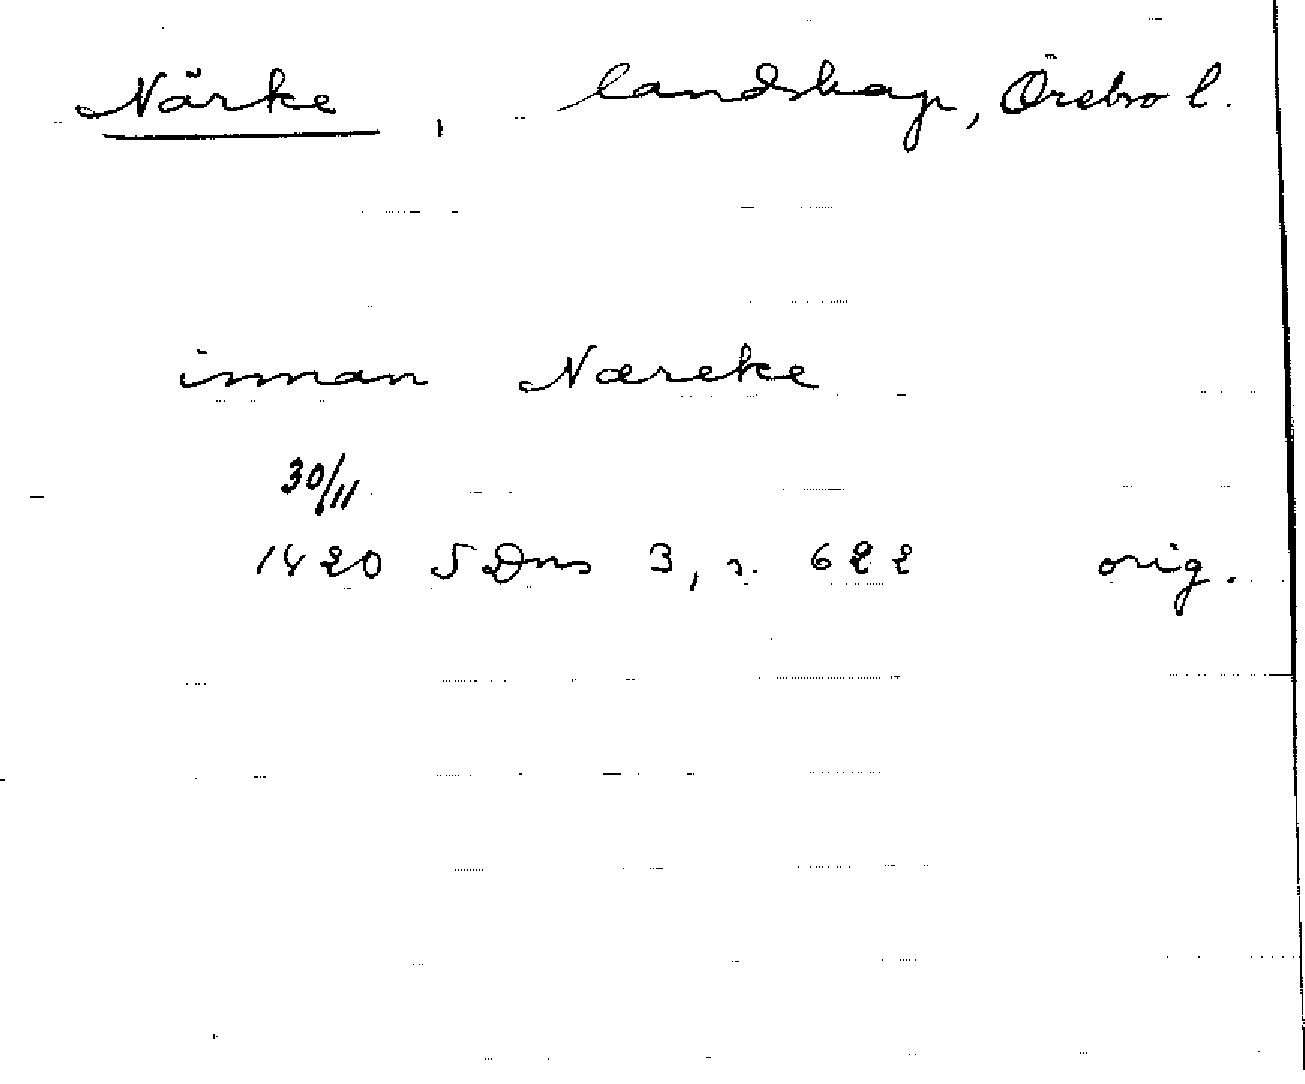 Närke, landskap, Örebro l.
inman Næreke
30/11
1420 SDns 3, s. 622 orig.